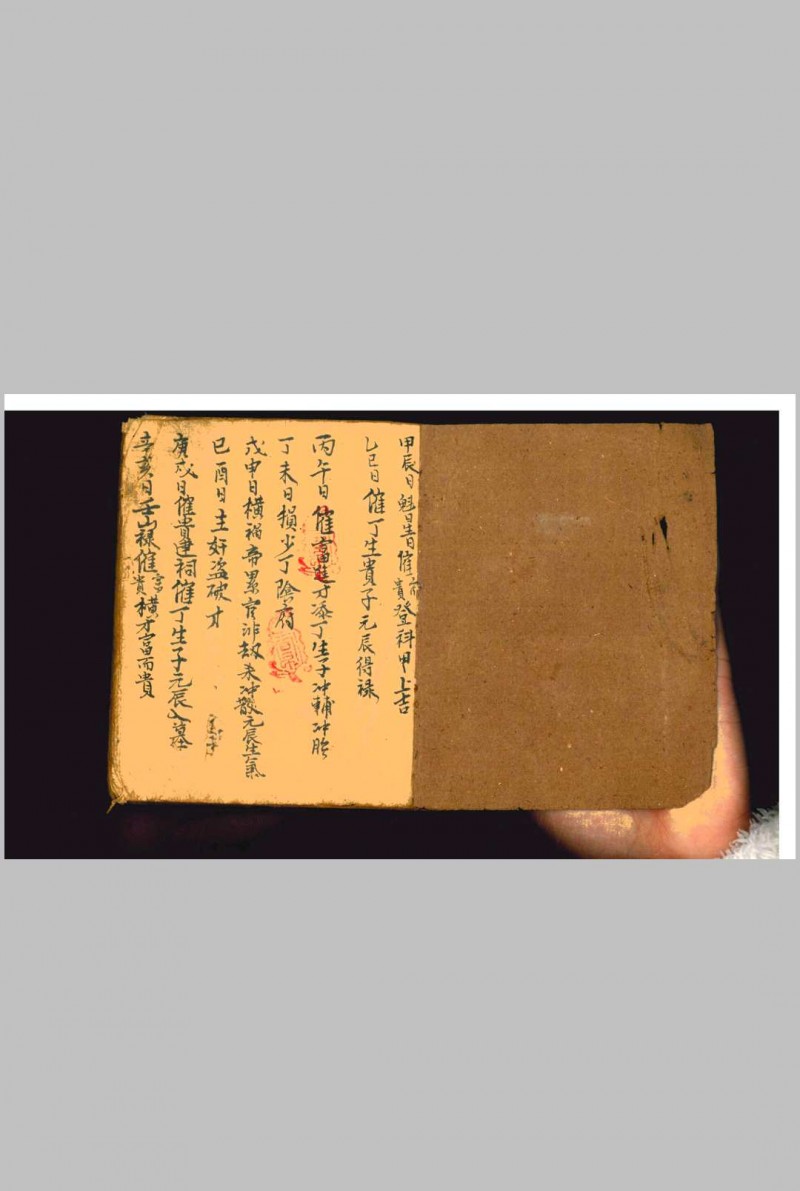 甲辰日魁星日催富貴登科甲上吉
乙巳日催丁生貴子元辰得祿
丙午日催富進才添丁生子冲輔冲胎
丁未日損少丁陰府
戊申日橫禍帝累官非劫未冲散元辰生氣
已酉日主奸盗破才
庚戌日催貴建祠催丁生子元辰入墓
辛亥日壬山祿催富貴橫才富而貴